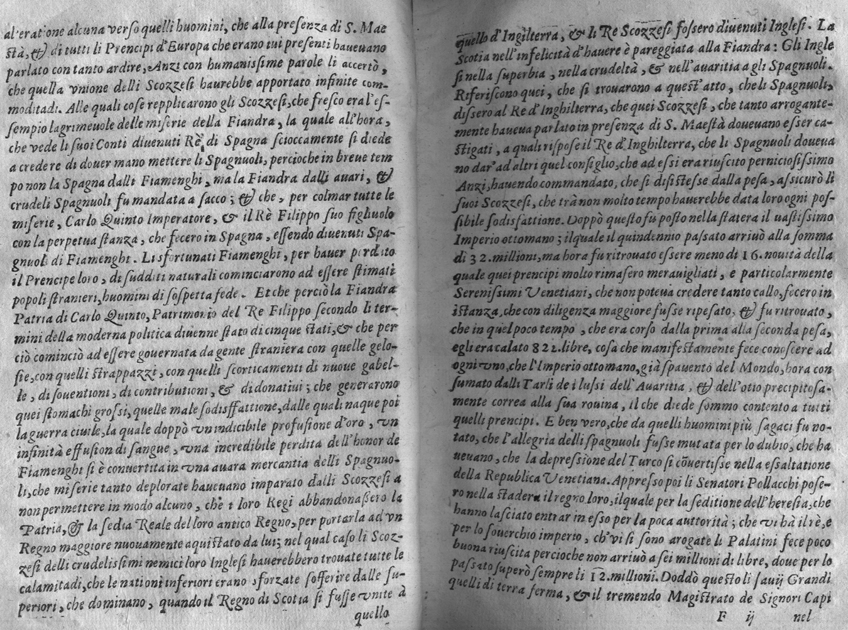 al'eratione alcuna verso quelli huomini, che alla presenza di S. Mae
stà, & di tutti li Prencipi d'Europa che erano iui presenti haueuano
parlato con tanto ardire, Anzi con humanissime parole li accertò,
che quella vnione delli Scozzesi haurebbe apportato infinite com-
moditadi. Alle quali cose repplicarono gli Scozzesi, che fresco era l'es-
sempio lagrimeuole delle miserie della Fiandra, la quale all'hora,
che vede li suoi Conti diuenuti Rè di Spagna scioccamente si diede
a credere di douer mano mettere li Spagnuoli, percioche in breue tem
po non la Spagna dalli Fiamenghi, ma la Fiandra dalli auari, &
crudeli Spagnuoli fu mandata a sacco; & che, per colmar tutte le
miserie, Carlo Quinto Imperatore, & il Rè Filippo suo figliuolo
con la perpetua stanza, che fecero in Spagna, essendo diuenuti Spa-
gnuoli di Fiamenghi. Li sfortunati Fiamenghi, per hauer perduto
il Prencipe loro, di sudditi naturali cominciarono ad essere stimati
popoli stranieri, huomini di sospetta fede. Et che perciò la Fiandra
Patria di Carlo Quinto, Patrimonio del Re Filippo secondo li ter-
mini della moderna politica diuenne stato di cinque stati, & che per
ciò cominciò ad essere gouernata da gente straniera con quelle gelo-
sie, con quelli strappazzi, con quelli scorticamenti di nuoue gabel-
le, di souentioni, di contributioni, & di donatiui; che generarono
quei stomachi grossi, quelle male sodisffattione, dalle quali naque poi
la guerra ciuile, la quale doppò vn indicibile profusione d'oro, vn
infinità effusion di sangue, vna incredibile perdita dell'honor de
Fiamenghi si è conuertita in vna auara mercantia delli Spagnuo-
li, che miserie tanto deplorate haueuano imparato dalli Scozzesi a
non permettere in modo alcuno, che i loro Regi abbandonassero la
Patria, & la sedia Reale del loro antico Regno, per portarla ad vn
Regno maggiore nuouamente aquistato da lui; nel qual caso li Scoz-
zesi delli crudelissimi nemici loro Inglesi hauerebbero trouate tutte le
calamitadi, che le nationi inferiori erano sforzate sofferire dalle su-
periori, che dominano, quando il Regno di Scotia si fusse vnite à
quello
quello d'Ingilterra, & li Re Scozzesi fossero diuenuti Inglesi. La
Scotia nell'infelicità d'hauere è pareggiata alla Fiandra: Gli Ingle
si nella superbia, nella crudeltà, & nell'auaritia a gli Spagnuoli.
Riferiscono quei, che si trouarono a quest'atto, che li Spagnuoli,
dissero al Re d'Inghilterra, che quei Scozzesi, che tanto arrogante-
mente haueua parlato in presenza di S. Maestà doueuano esser ca-
stigati, a quali rispose il Re d'Inghilterra, che li Spagnuoli doueua
no dar' ad altri quel consiglio, che ad essi era riuscito perniciosissimo
Anzi, hauendo commandato, che si disistesse dalla pesa, assicurò li
suoi Scozzesi, che trà non molto tempo hauerebbe data loro ogni pos-
sibile sodisfattione. Doppò questo fu posto nella statera il uastissimo
Imperio ottomano; ilquale il quindennio passato arriuò alla somma
di 32. millioni, ma hora fu ritrouato essere meno di 16. nouità della
quale quei prencipi molto rimasero merauigliati, e particolarmente
Serenissimi Venetiani, che non poteua credere tanto callo, fecero in
istanza, che con diligenza maggiore fusse ripesato, & fu ritrouato,
che in quel poco tempo, che era corso dalla prima alla seconda pesa,
egli era calato 822. libre, cosa che manifestamente fece conoscere ad
ogni vno, che l'Imperio ottomano, già spauento del Mondo, hora con
sumato dalli Tarli dei lussi dell'Auaritia, & dell'otio precipitosa-
mente correa alla sua rouina, il che diede sommo contento a tutti
quelli prencipi. E ben vero, che da quelli huomini più sagaci fu no-
tato, che l'allegria delli spagnuoli fusse mutata per lo dubio, che ha
ueuano, che la depressione del Turco si cōuertisse nella essaltatione
della Republica Venetiana. Appresso poi li Senatori Pollacchi pose-
ro nella stadera il regno loro, ilquale per la seditione dell'heresia, che
hanno lasciato entrar in esso per la poca auttorità; che vi hà il rè, e
per lo souerchio imperio, ch'vi si sono arogate li Palatini fece poco
buona riuscita percioche non arriuò a sei millioni di libre, doue per lo
passato superò sempre li 12. millioni. Doddò questo li sauij Grandi
quelli di terra ferma, & il tremendo Magistrato de Signori Capi
F ij nel